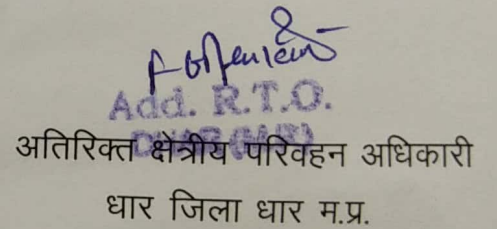 Add. R.T.O.
DHAR (M.P.)
अतिरिक्त क्षेत्रीय परिवहन अधिकारी
धार जिला धार म.प्र.